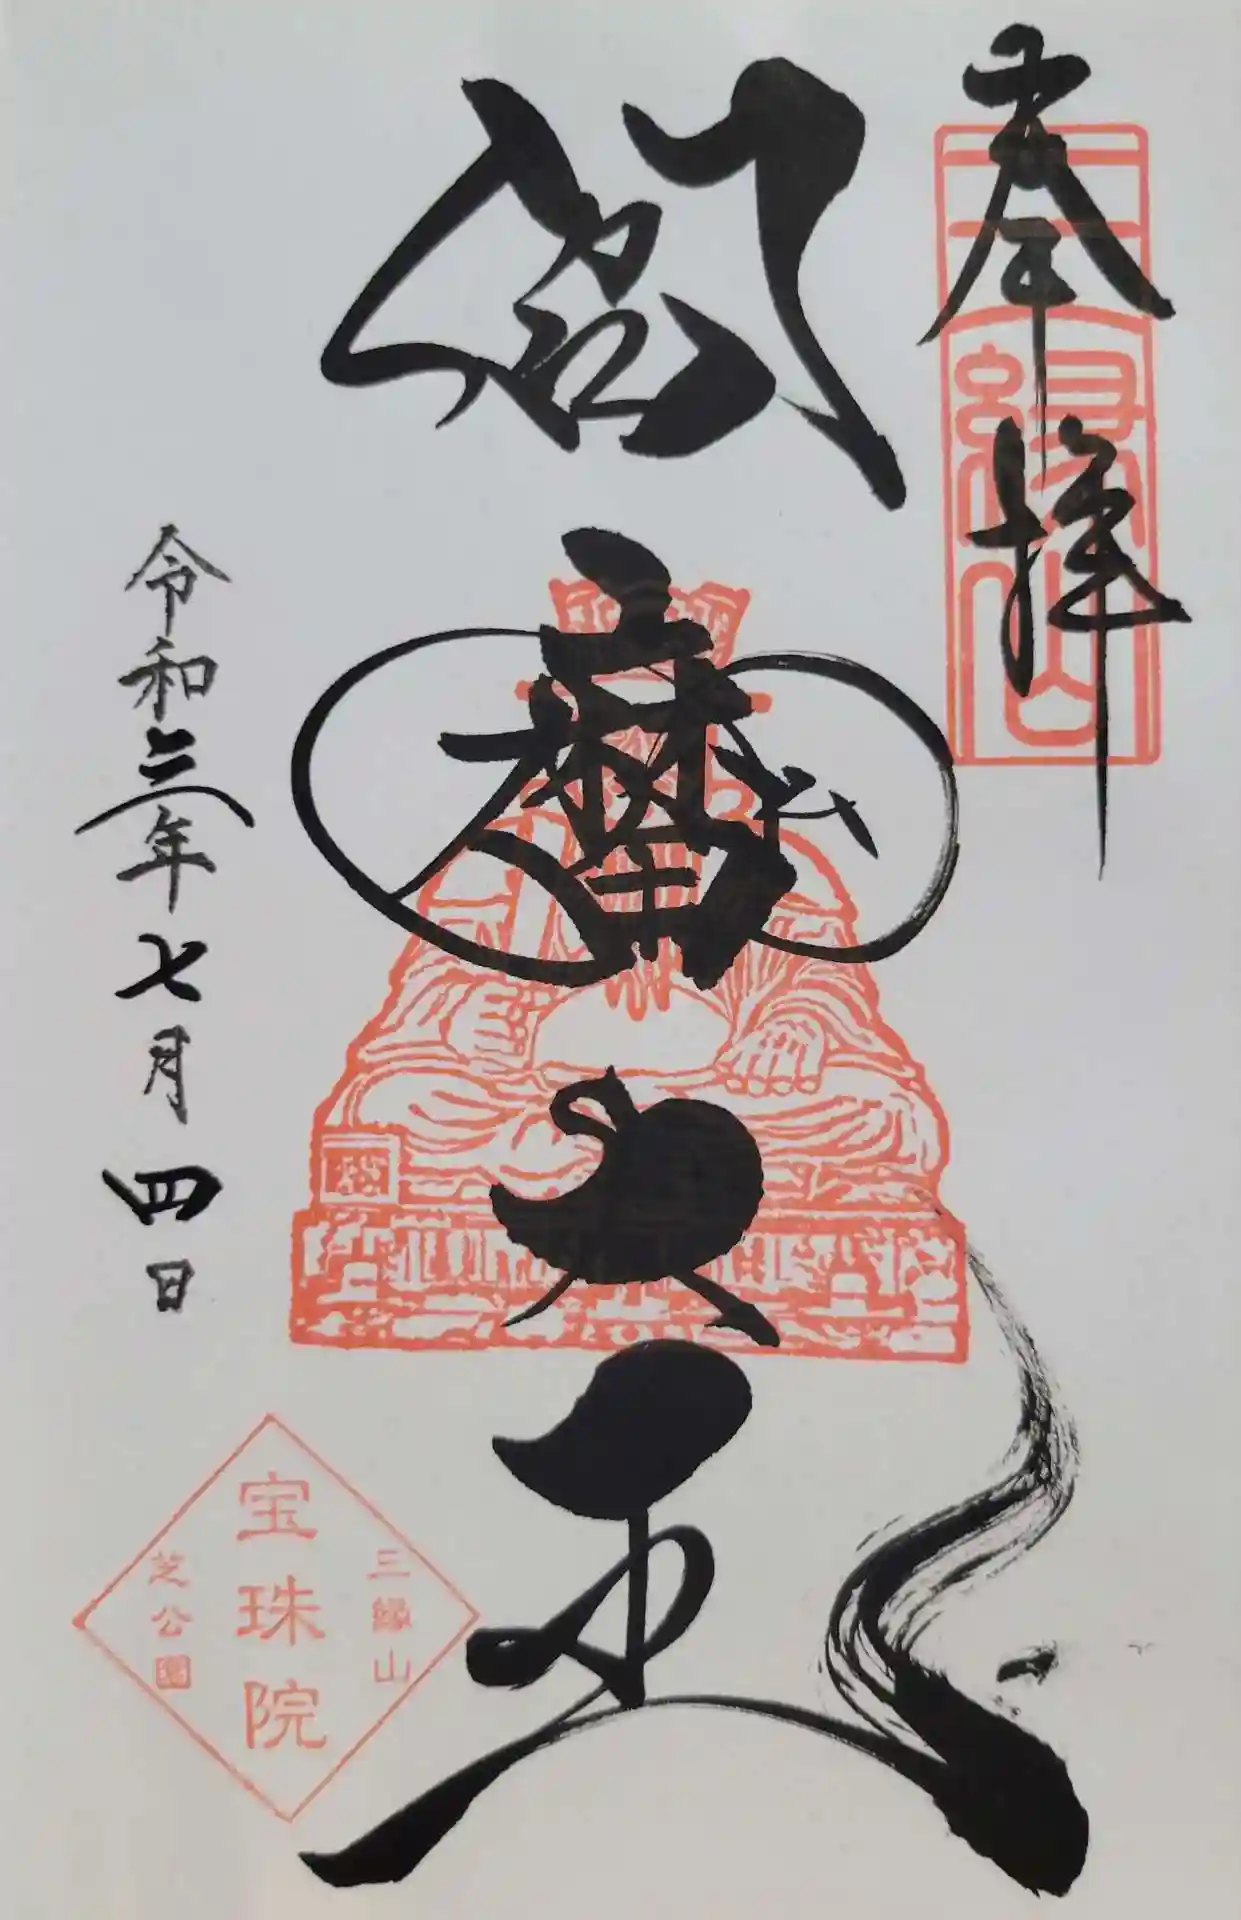 奉拝
三縁山
閻魔大王
令和三年七月四日
三縁山
宝珠院
芝公園